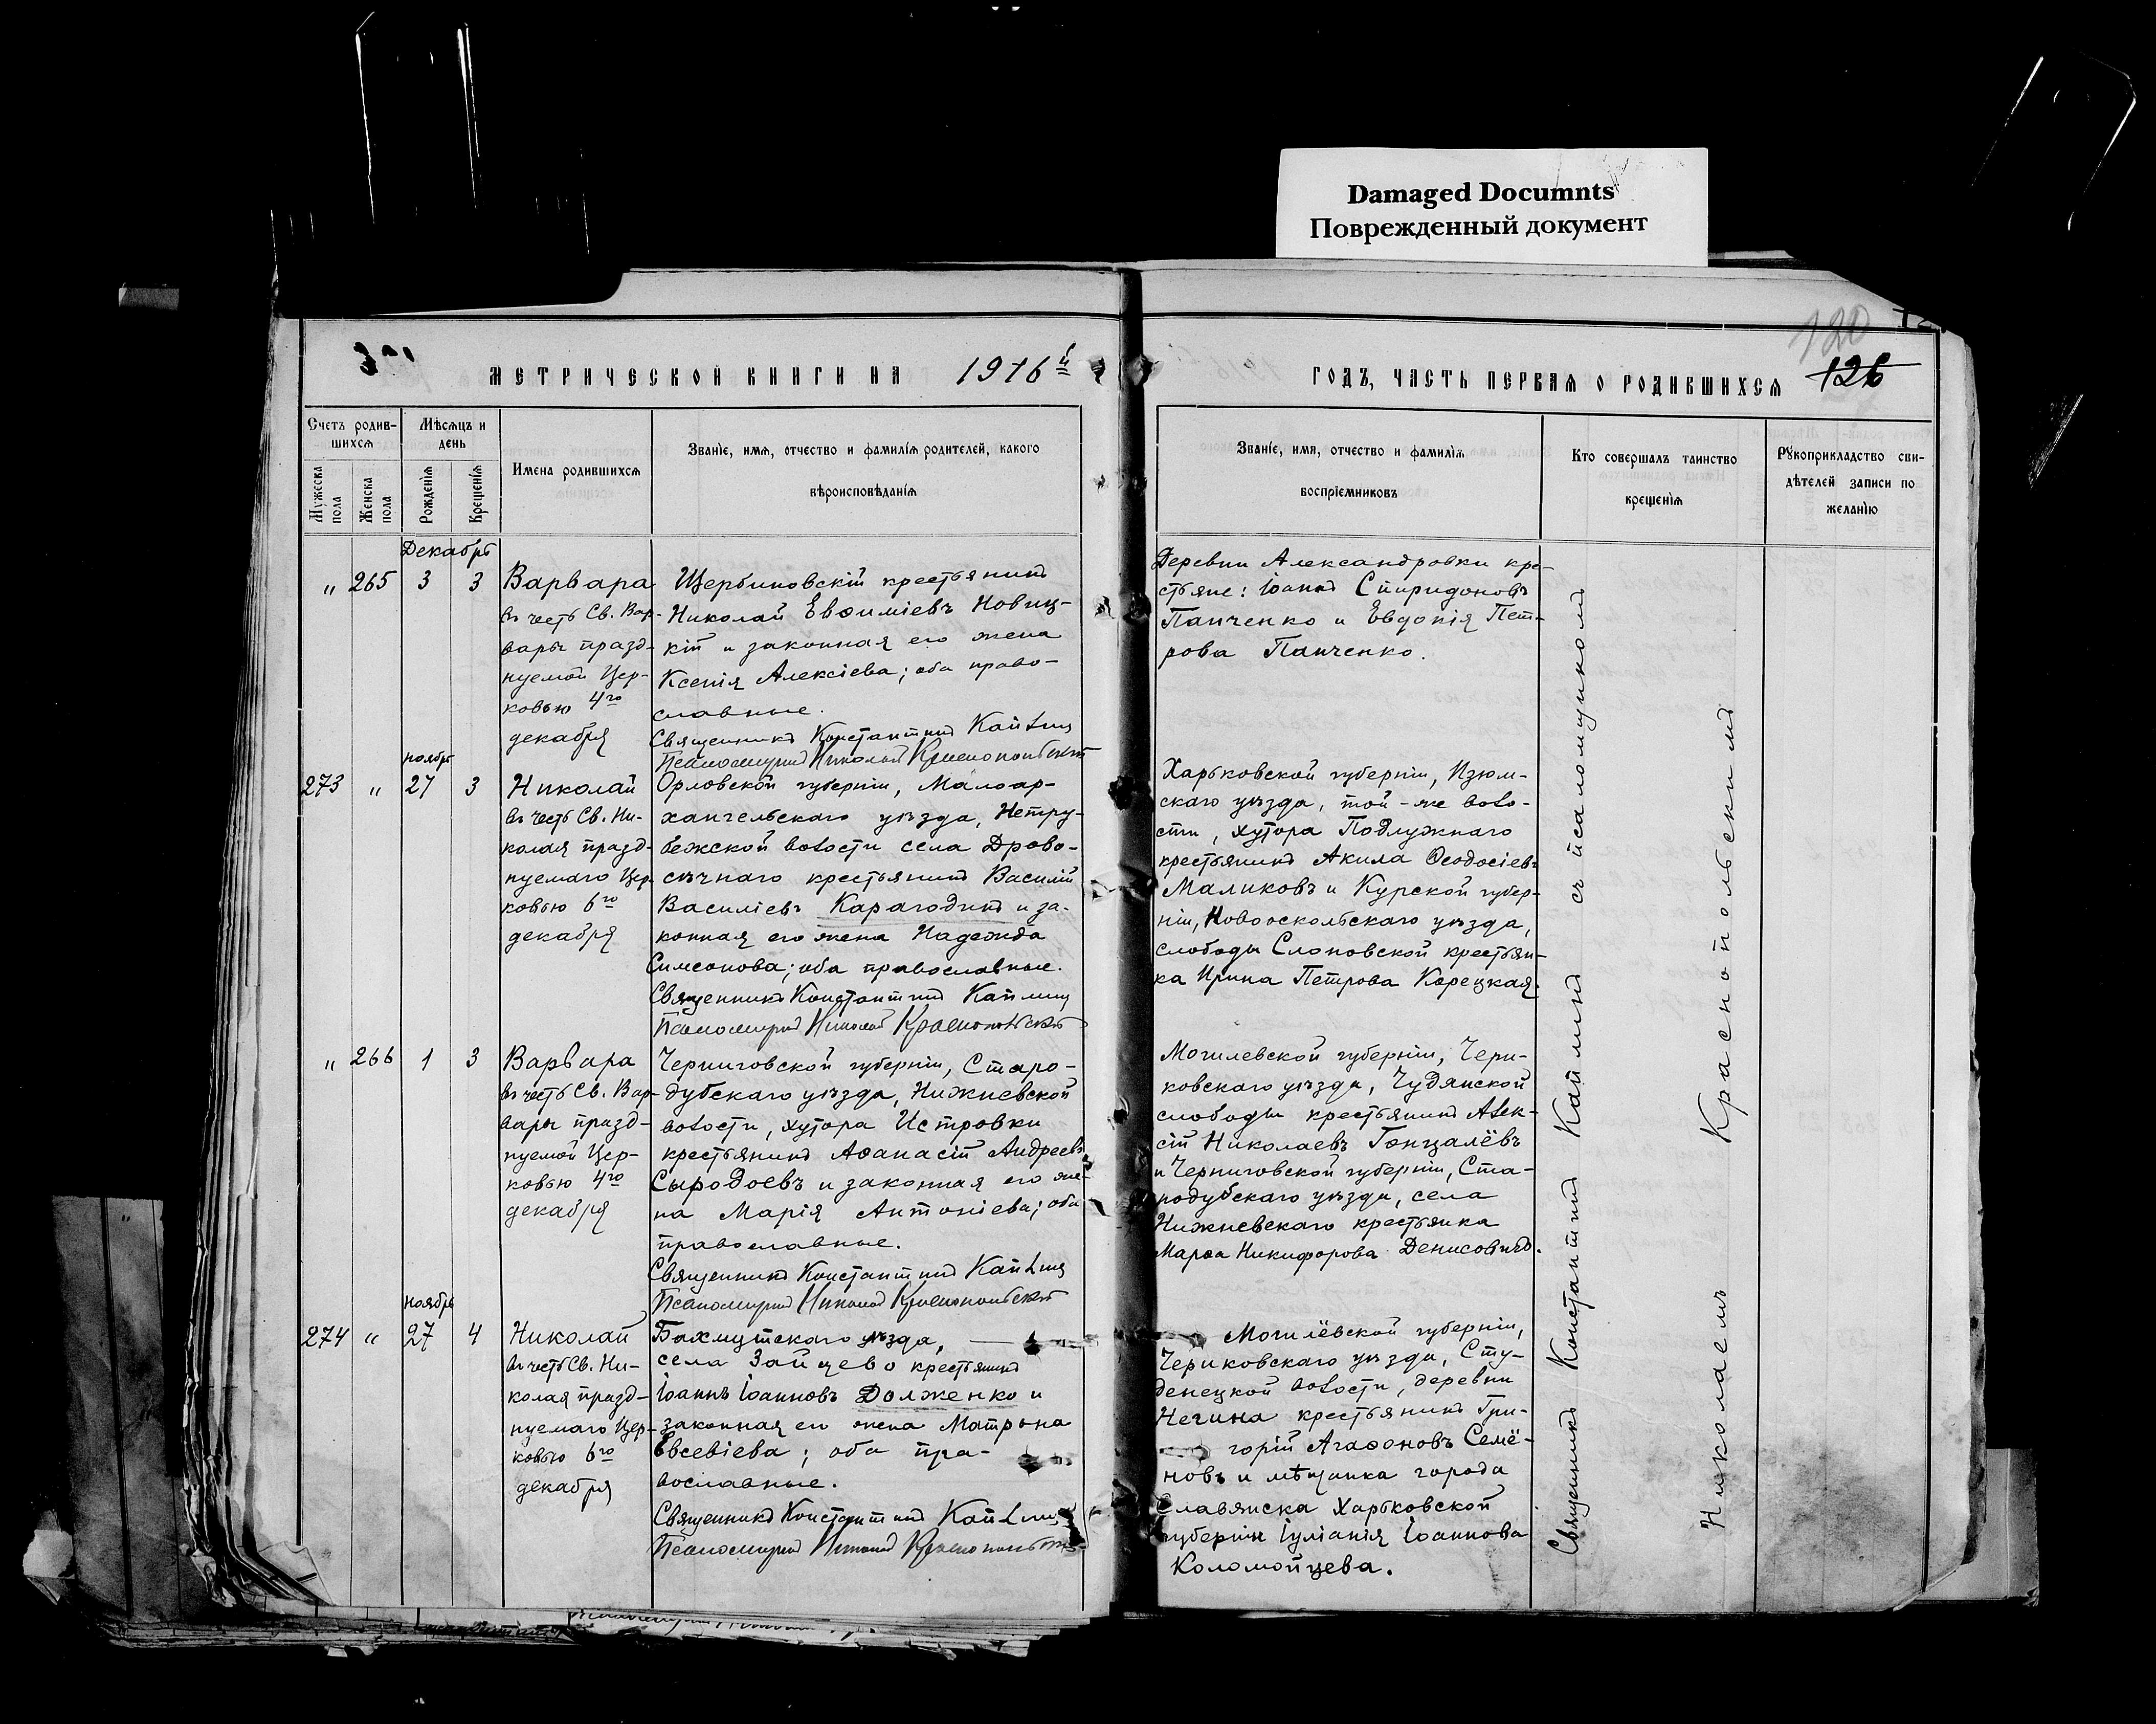 Damaged Documnts
Поврежденный документ
120
126
МЕТРИЧЕСКОЙ КНИГИ НА 1916й
ГОДЪ, ЧАСТЬ ПЕРВАЯ О РОДИВШИХСЯ
Счетъ родив-
шихся
Мужеска пола
Женска пола
Мѣсяцъ и
день
Рожденія
Крещенія
Имена родившихся
Званіе, имя, отчество и фамилія родителей, какого
вѣроисповѣданія
Званіе, имя, отчество и фамилія
воспріемниковъ
Кто совершалъ таинство
крещенія
Рукоприкладство сви-
дѣтелей записи по
желанію
Декабрь
" 265 3 3
Варвара
въ честь Св. Вар-
вары празд-
нуемой Цер-
ковью 4го
декабря
Щербиновскій крестьянинъ
Николай Евѳиміевъ Новиц-
кій и законная его жена
Ксенія Алексіева; оба право-
славные.
Священникъ Константинъ Каплинъ
Псаломщикъ Николай Краснопольскій
Деревни Александровки кре-
стьяне: Іоаннъ Спиридоновъ
Панченко и Евдокія Пет-
рова Панченко.
ноябрь
273 " 27 3
Николай
въ честь Св. Ни-
колая празд-
нуемаго Цер-
ковью 6го
декабря
Орловской губерніи, Малоар-
хангельскаго уѣзда, Нетру-
бежской волости села Дрово-
сѣчнаго крестьянинъ Василій
Василіевъ Карагодинъ и за-
конная его жена Надежда
Симеонова; оба православные.
Священникъ Константинъ Каплинъ
Псаломщикъ Николай Краснопольскій
Харьковской губерніи, Изюм-
скаго уѣзда, той-же воло-
сти, хутора Подлужнаго
крестьянинъ Акила Ѳеодосіевъ
Маликовъ и Курской губер-
ніи, Новооскольскаго уѣзда,
слободы Слоновской крестьян-
ка Ирина Петрова Корецкая.
" 266 1 3
Варвара
въ честь Св. Вар-
вары празд-
нуемой Цер-
ковью 4го
декабря
Черниговской губерніи, Старо-
дубскаго уѣзда, Нижневской
волости, хутора Истровки
крестьянинъ Аѳанасій Андреевъ
Сыродоевъ и законная его же-
на Марія Антоніева; оба
православные.
Священникъ Константинъ Каплинъ
Псаломщикъ Николай Краснопольскій
Могилевской губерніи, Чери-
ковскаго уѣзда, Чудянской
слободы крестьянинъ Алек-
сій Николаевъ Гонцалёвъ
и Черниговской губерніи, Ста-
родубскаго уѣзда, села
Нижневскаго крестьянка
Марѳа Никифорова Денисовичъ.
ноябрь
274 " 27 4
Николай
въ честь Св. Ни-
колая празд-
нуемаго Цер-
ковью 6го
декабря
Бахмутскаго уѣзда,
села Зайцево крестьянинъ
Іоаннъ Іоанновъ Долженко и
законная его жена Матрона
Евсевіева; оба пра-
вославные.
Священникъ Константинъ Каплинъ
Псаломщикъ Николай Краснопольскій
Могилёвской губерніи,
Чериковскаго уѣзда, Сту-
денецкой волости, деревни
Негина крестьянинъ Гри-
горій Агаѳоновъ Семё-
новъ и мѣщанка города
Славянска Харьковской
губерніи Іуліанія Іоаннова
Коломойцева.
Священникъ Константинъ Каплинъ съ псаломщикомъ
Николаемъ Краснопольскимъ